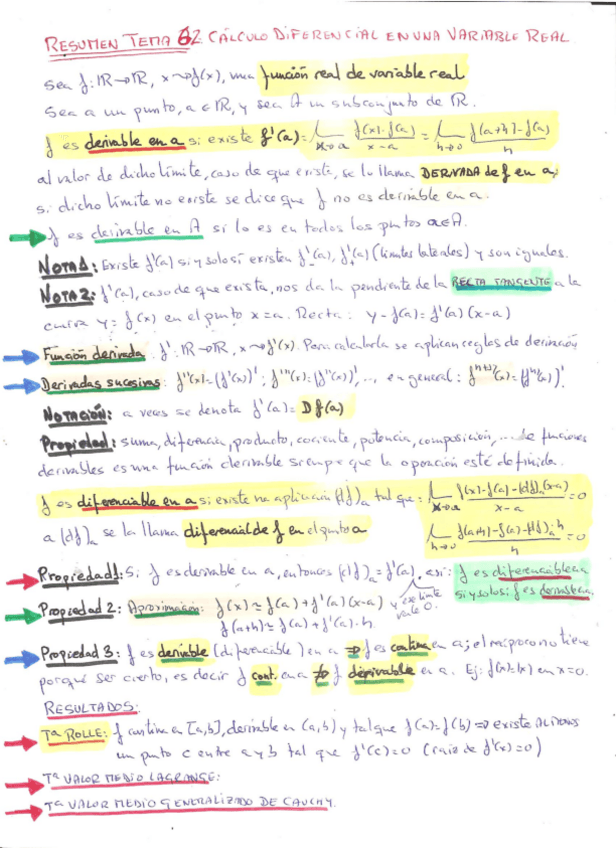 RESUMEN TEMA 2. CÁLCULO DIFERENCIAL EN UNA VARIABLE REAL
Sea f: ℝ→ℝ, x⇝f(x), una función real de variable real
Sea a un punto, a∈ℝ, y sea A un subconjunto de ℝ.
f es derivable en a si existe f'(a) = lim_{x→a} (f(x)-f(a))/(x-a) = lim_{h→0} (f(a+h)-f(a))/h
al valor de dicho límite, caso de que existe, se le llama DERIVADA de f en a;
si dicho límite no existe se dice que f no es derivable en a.
f es derivable en A si lo es en todos los puntos a∈A.
NOTA 1: Existe f'(a) si y solo si existen f'₋(a), f'₊(a) (límites laterales) y son iguales.
NOTA 2: f'(a), caso de que exista, nos da la pendiente de la RECTA TANGENTE a la
curva y=f(x) en el punto x=a. Recta: y-f(a)=f'(a)(x-a)
Función derivada: f': ℝ→ℝ, x⇝f'(x). Para calcularla se aplican reglas de derivación
Derivadas sucesivas: f''(x)=(f'(x))'; f'''(x)=(f''(x))',..., en general: fⁿ⁺¹⁾(x)=(fⁿ⁾(x))'
NOTACIÓN: a veces se denota f'(a)=Df(a)
Propiedad: suma, diferencia, producto, cociente, potencia, composición, ... de funciones
derivables es una función derivable siempre que la operación esté definida.
f es diferenciable en a si existe una aplicación (df)ₐ tal que: lim_{x→a} (f(x)-f(a)-(df)ₐ(x-a))/(x-a) = 0
a (df)ₐ se la llama diferencial de f en el punto a lim_{h→0} (f(a+h)-f(a)-(df)ₐ·h)/h = 0
Propiedad 1: Si f es derivable en a, entonces (df)ₐ=f'(a), así: f es diferenciable en a
si y solo si f es derivable en a.
Propiedad 2: Aproximación: f(x)≃f(a)+f'(a)(x-a) y ese límite
f(a+h)≃f(a)+f'(a)·h. vale 0.
Propiedad 3: f es derivable (diferenciable) en a ⇒ f es continua en a; el recíproco no tiene
porqué ser cierto, es decir f cont. en a ⇏ f derivable en a. Ej: f(x)=|x| en x=0.
RESULTADOS:
Tª ROLLE: f continua en [a,b], derivable en (a,b) y tal que f(a)=f(b) ⇒ existe AL MENOS
un punto c entre a y b tal que f'(c)=0 (raíz de f'(x)=0)
Tª VALOR MEDIO LAGRANGE:
Tª VALOR MEDIO GENERALIZADO DE CAUCHY.